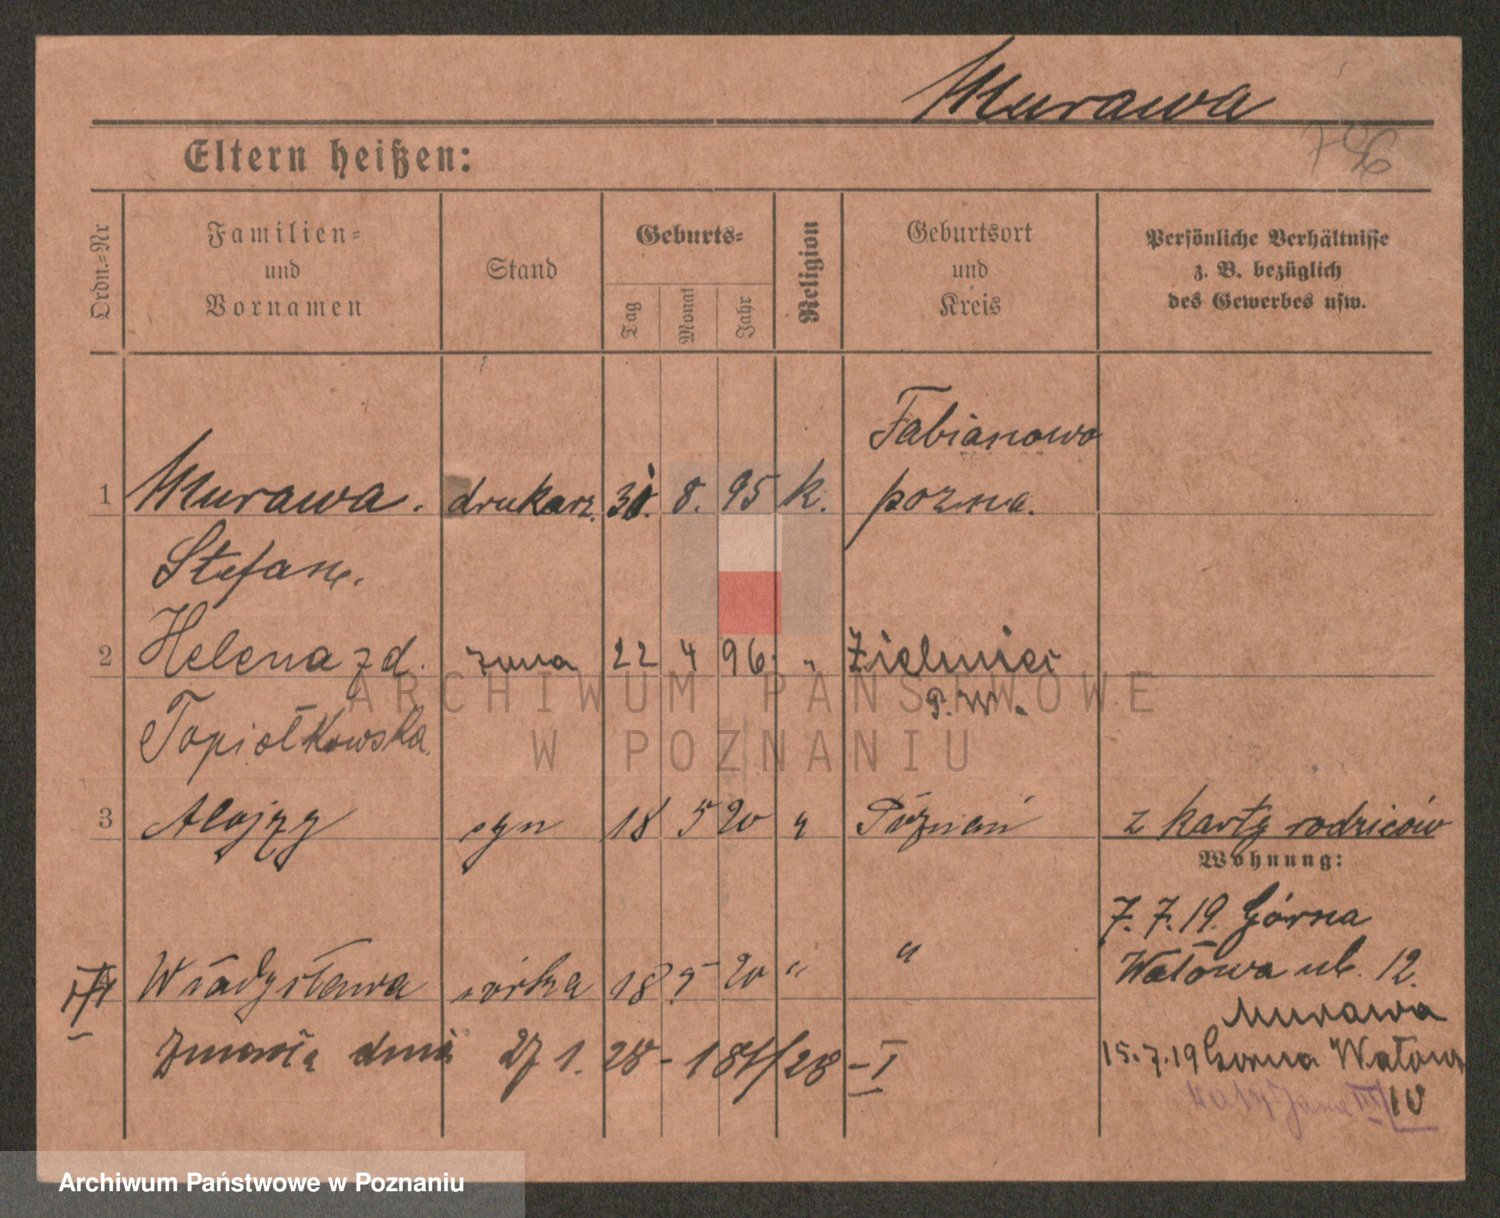 Murawa
Eltern heißen:
Ordn.-Nr
Familien-
und
Vornamen
Stand
Geburts-
Tag
Monat
Jahr
Religion
Geburtsort
und
Kreis
Persönliche Verhältnisse
z. B. bezüglich
des Gewerbes usw.
Fabianowo
1 Murawa. drukarz. 30. 8. 95 k. pozna.
Stefan.
2 Helena z d. żona 22 4 96. " Zieliniec
P. W.
Topiołkowska
3 Alojzy syn 18 5 20 " Poznań z karty rodziców
Wohnung:
7. 7. 19. Górna
Władysława córka 18 5 20 " " Wałowa ul. 12.
Murawa
Zmarła dnia 27 1. 28 - 181/28 - I 15. 7. 19 Gorna Wałowa
IV
ARCHIWUM PAŃSTWOWE
W POZNANIU
Archiwum Państwowe w Poznaniu